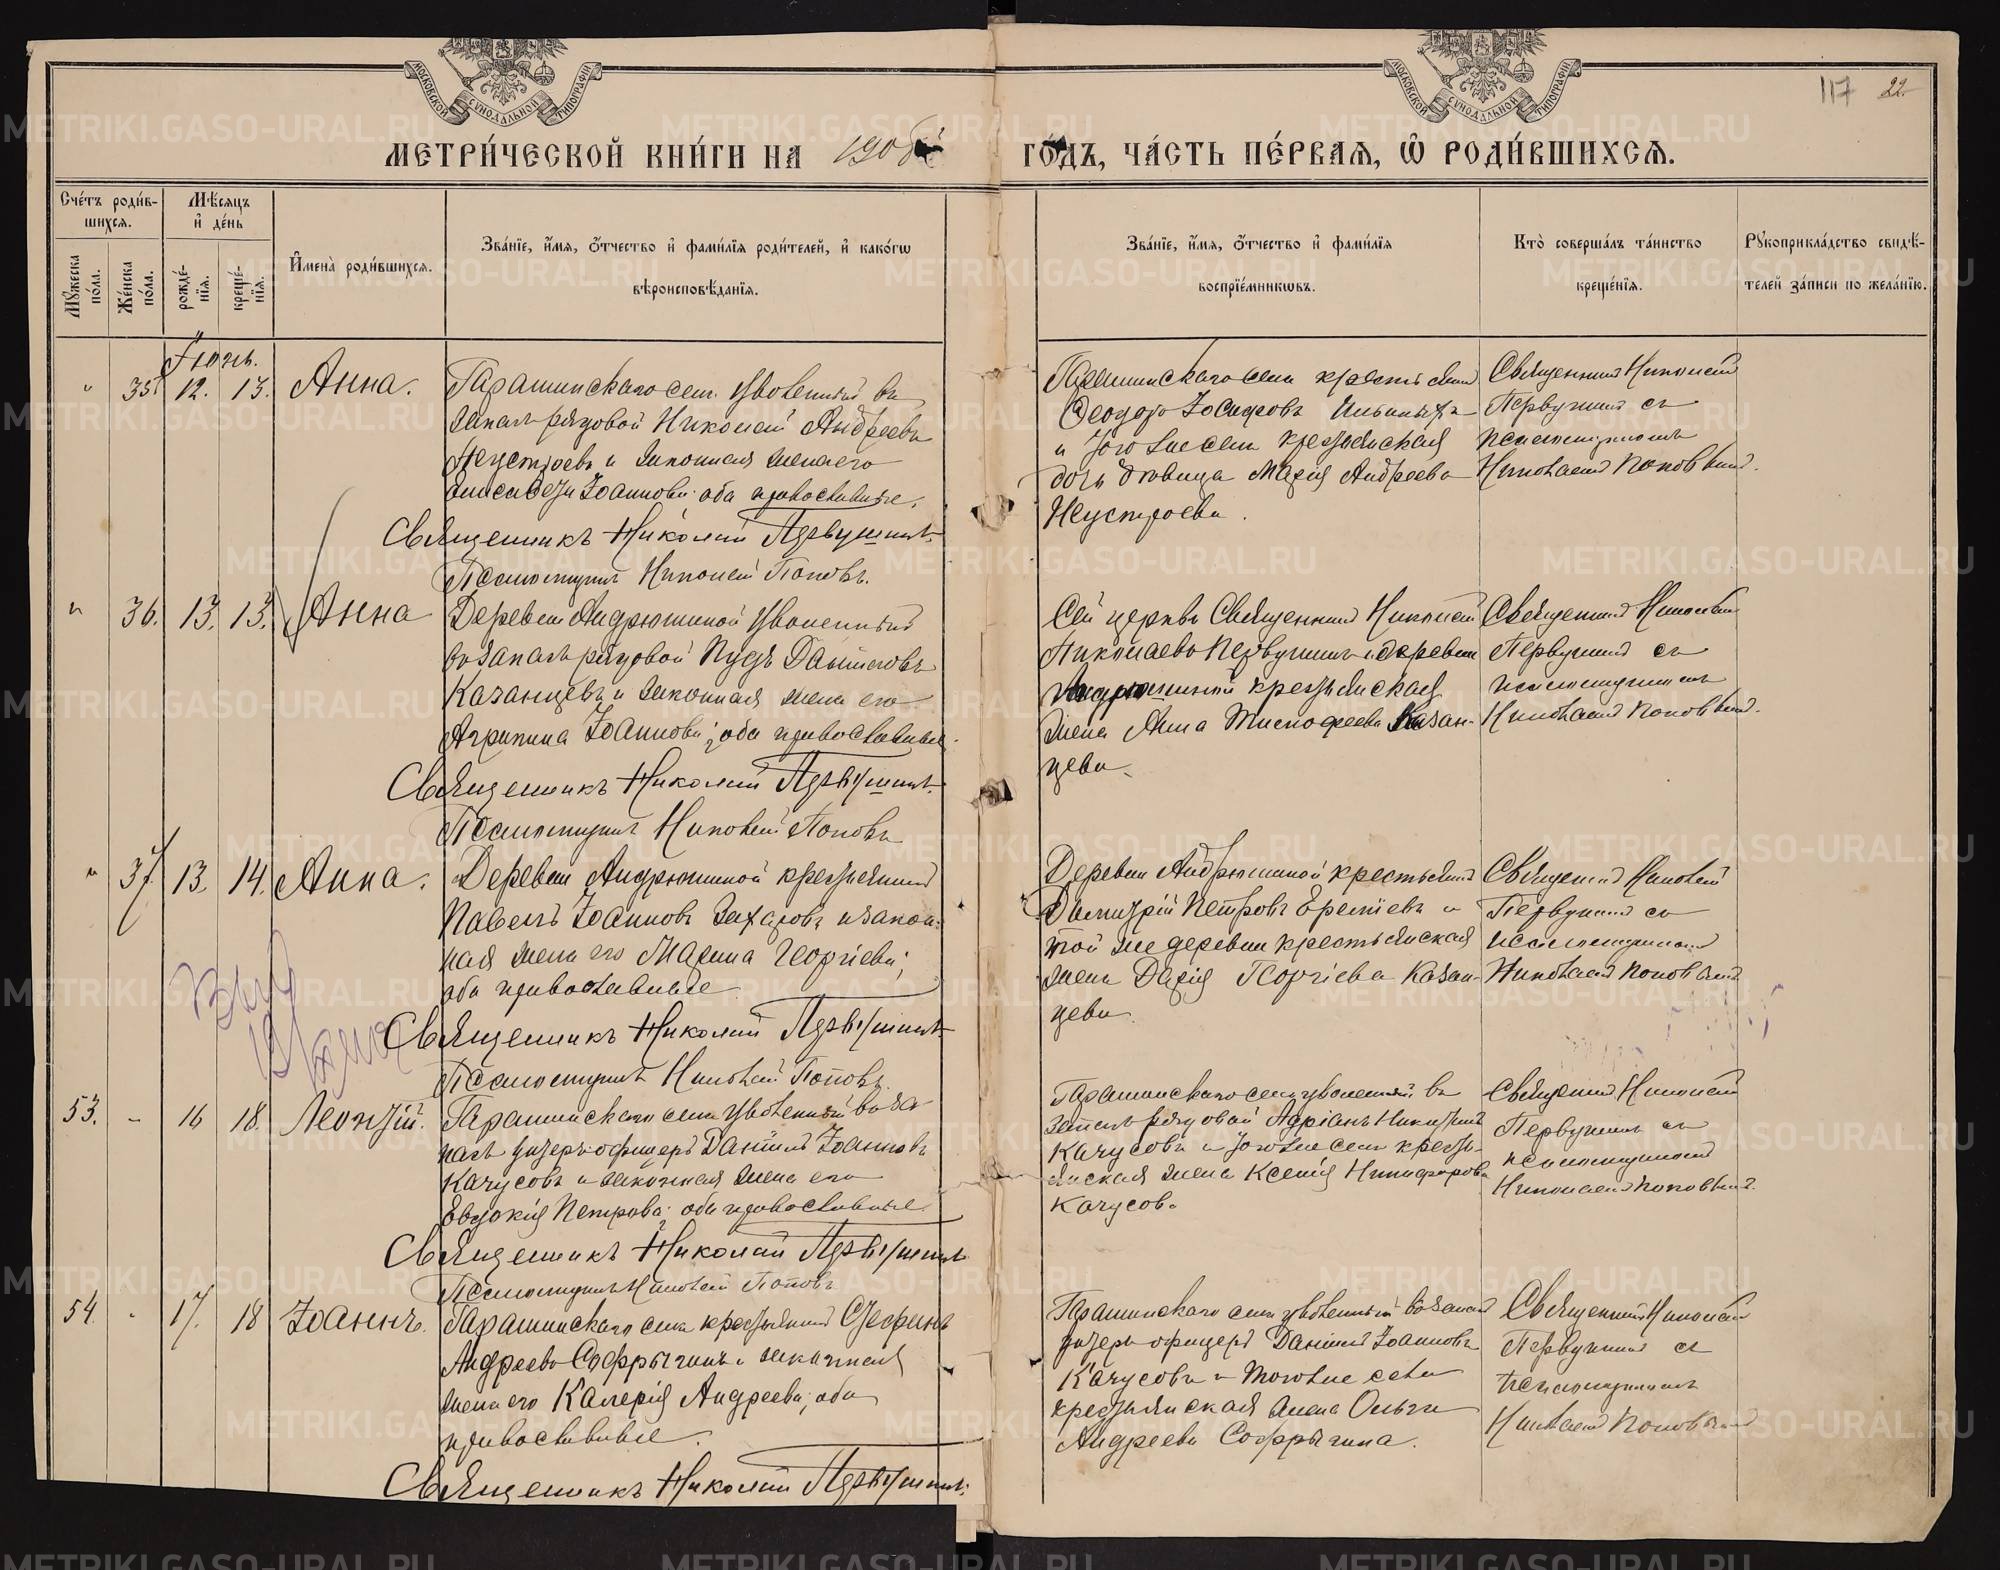 МОСКОВСКОЙ СѴНОДАЛЬНОЙ ТИПОГРАФІИ
МОСКОВСКОЙ СѴНОДАЛЬНОЙ ТИПОГРАФІИ
117 22
МЕТРИ́ЧЕСКОЙ КНИ́ГИ НА 190 ГО́ДЪ, ЧА́СТЬ ПЕ́РВАЯ, Ѡ РОДИ́ВШИХСЯ.
Сче́тъ роди́в-
шихся.
Мѣ́сяцъ
и҆ де́нь
Мꙋ́жеска по́ла.
Же́нска по́ла.
рожде́-нїя.
креще́-нїя.
И҆мена̀ роди́вшихся.
Зва́нїе, и҆́мя, ѻ҆́тчество и҆ фами́лїя роди́телей, и҆ како́гѡ
вѣроисповѣ́данїя.
Зва́нїе, и҆́мя, ѻ҆́тчество и҆ фами́лїя
воспрїе́мникѡвъ.
Кто̀ соверша́лъ та́инство
креще́нїя.
Рꙋкоприкла́дство свидѣ́-
телей за́писи по жела́нїю.
Іюнь.
" 35 12. 13. Анна.
Гарашинскаго села уволенный въ
запасъ рядовой Николай Андреевъ
Неустроевъ и законная жена его
Елисавета Іоаннова; оба православные.
Священникъ Николай Первушинъ.
Псаломщикъ Николай Поповъ.
Гарашинскаго села крестьянинъ
Ѳеодоръ Іосифовъ
и того же села крестьянская
дочь девица Марія Андреева
Неустроева.
Священникъ Николай
Первушинъ съ
псаломщикомъ
Николаемъ Поповымъ.
" 36. 13. 13. Анна
Деревни Андрюшиной уволенный
въ запасъ рядовой Пудъ Даниловъ
Казанцевъ и законная жена его
Агрипина Іоаннова; оба православные.
Священникъ Николай Первушинъ.
Псаломщикъ Николай Поповъ
Сей церкви Священникъ Николай
Николаевъ Первушинъ и деревни
Андрюшиной крестьянская
жена Анна Тимофеева Казан-
цева.
Священникъ Николай
Первушинъ съ
псаломщикомъ
Николаемъ Поповымъ.
" 37. 13. 14. Анна.
Деревни Андрюшиной крестьянинъ
Павелъ Іоанновъ Захаровъ и закон-
ная жена его Марина Георгіева;
оба православные
Священникъ Николай Первушинъ.
Псаломщикъ Николай Поповъ.
Деревни Андрюшиной крестьянинъ
Димитрій Петровъ Еремѣевъ и
той же деревни крестьянская
жена Дарія Георгіева Казан-
цева
Священникъ Николай
Первушинъ съ
псаломщикомъ
Николаемъ Поповымъ
53. - 16 18. Леонтій.
Гарашинскаго села уволенный въ за-
пасъ унтеръ-офицеръ Даніилъ Іоанновъ
Качусовъ и законная жена его
Евдокія Петрова; оба православные.
Священникъ Николай Первушинъ
Псаломщикъ Николай Поповъ
Гарашинскаго села уволенный въ
запасъ рядовой Адріанъ Никитинъ
Качусовъ и того же села кресть-
янская жена Ксенія Никифорова
Качусова
Священникъ Николай
Первушинъ съ
псаломщикомъ
Николаемъ Поповымъ.
54. - 17. 18 Іоаннъ.
Гарашинскаго села крестьянинъ Стефанъ
Андреевъ Софрыгинъ и законная
жена его Калерія Андреева; оба
православные.
Священникъ Николай Первушинъ.
Гарашинскаго села уволенный въ запасъ
унтеръ-офицеръ Даніилъ Іоанновъ
Качусовъ и того же села
крестьянская жена Ольга
Андреева Софрыгина.
Священникъ Николай
Первушинъ съ
псаломщикомъ
Николаемъ Поповымъ
METRIKI.GASO-URAL.RU